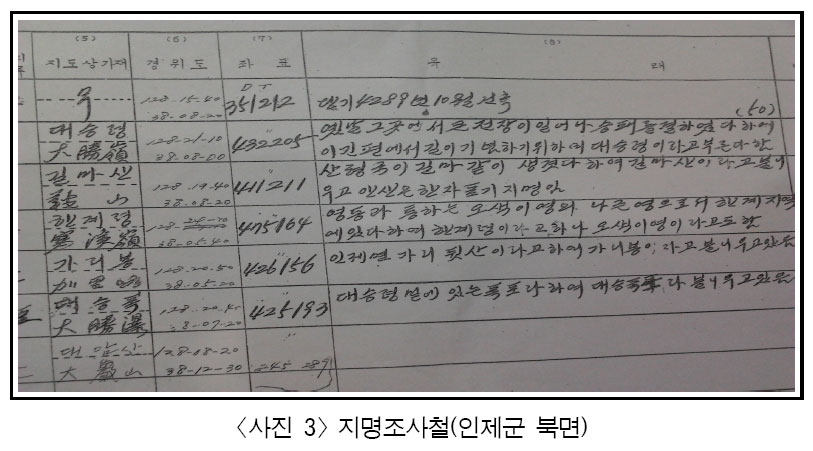 (5) (6) (7) (8)
지도상기재 경위도 좌표 유래
128-15-40 DT 351212 단기4289년 10월 건축
38-08-20 (50)
대승령 128-21-10 432205 옛날 그곳에서 큰 전장이 일어나 승패
大勝嶺 38-08-00 이긴 편에서 길이 기념하기 위하여 대승령이라고 부른다 함
길마산 128-19-40 411211 산형국이 길마같이 생겼다 하여 길마산이라고 불리
山 38-08-20 우고 안산은 한자표기지명임
한계령 128- 475164 영동과 통하는 오색이영와 나은영으로서 한계지역
寒溪嶺 38-05-40 에 있다하여 한계령이라고 하나 오색이영이라고도 함
가리봉 128-20-50 426156 인제면 가리 뒷산이라고하여 가리봉이라고 불리우고 있음
38-05-20
대승폭 128-20-40 425193 대승령 밑에 있는 폭포라 하여 대승폭포라 불리우고 있음
大勝瀑 38-07-20
대암산 128-08-20
大巖山 38-12-30 245 289
<사진 3> 지명조사철(인제군 북면)